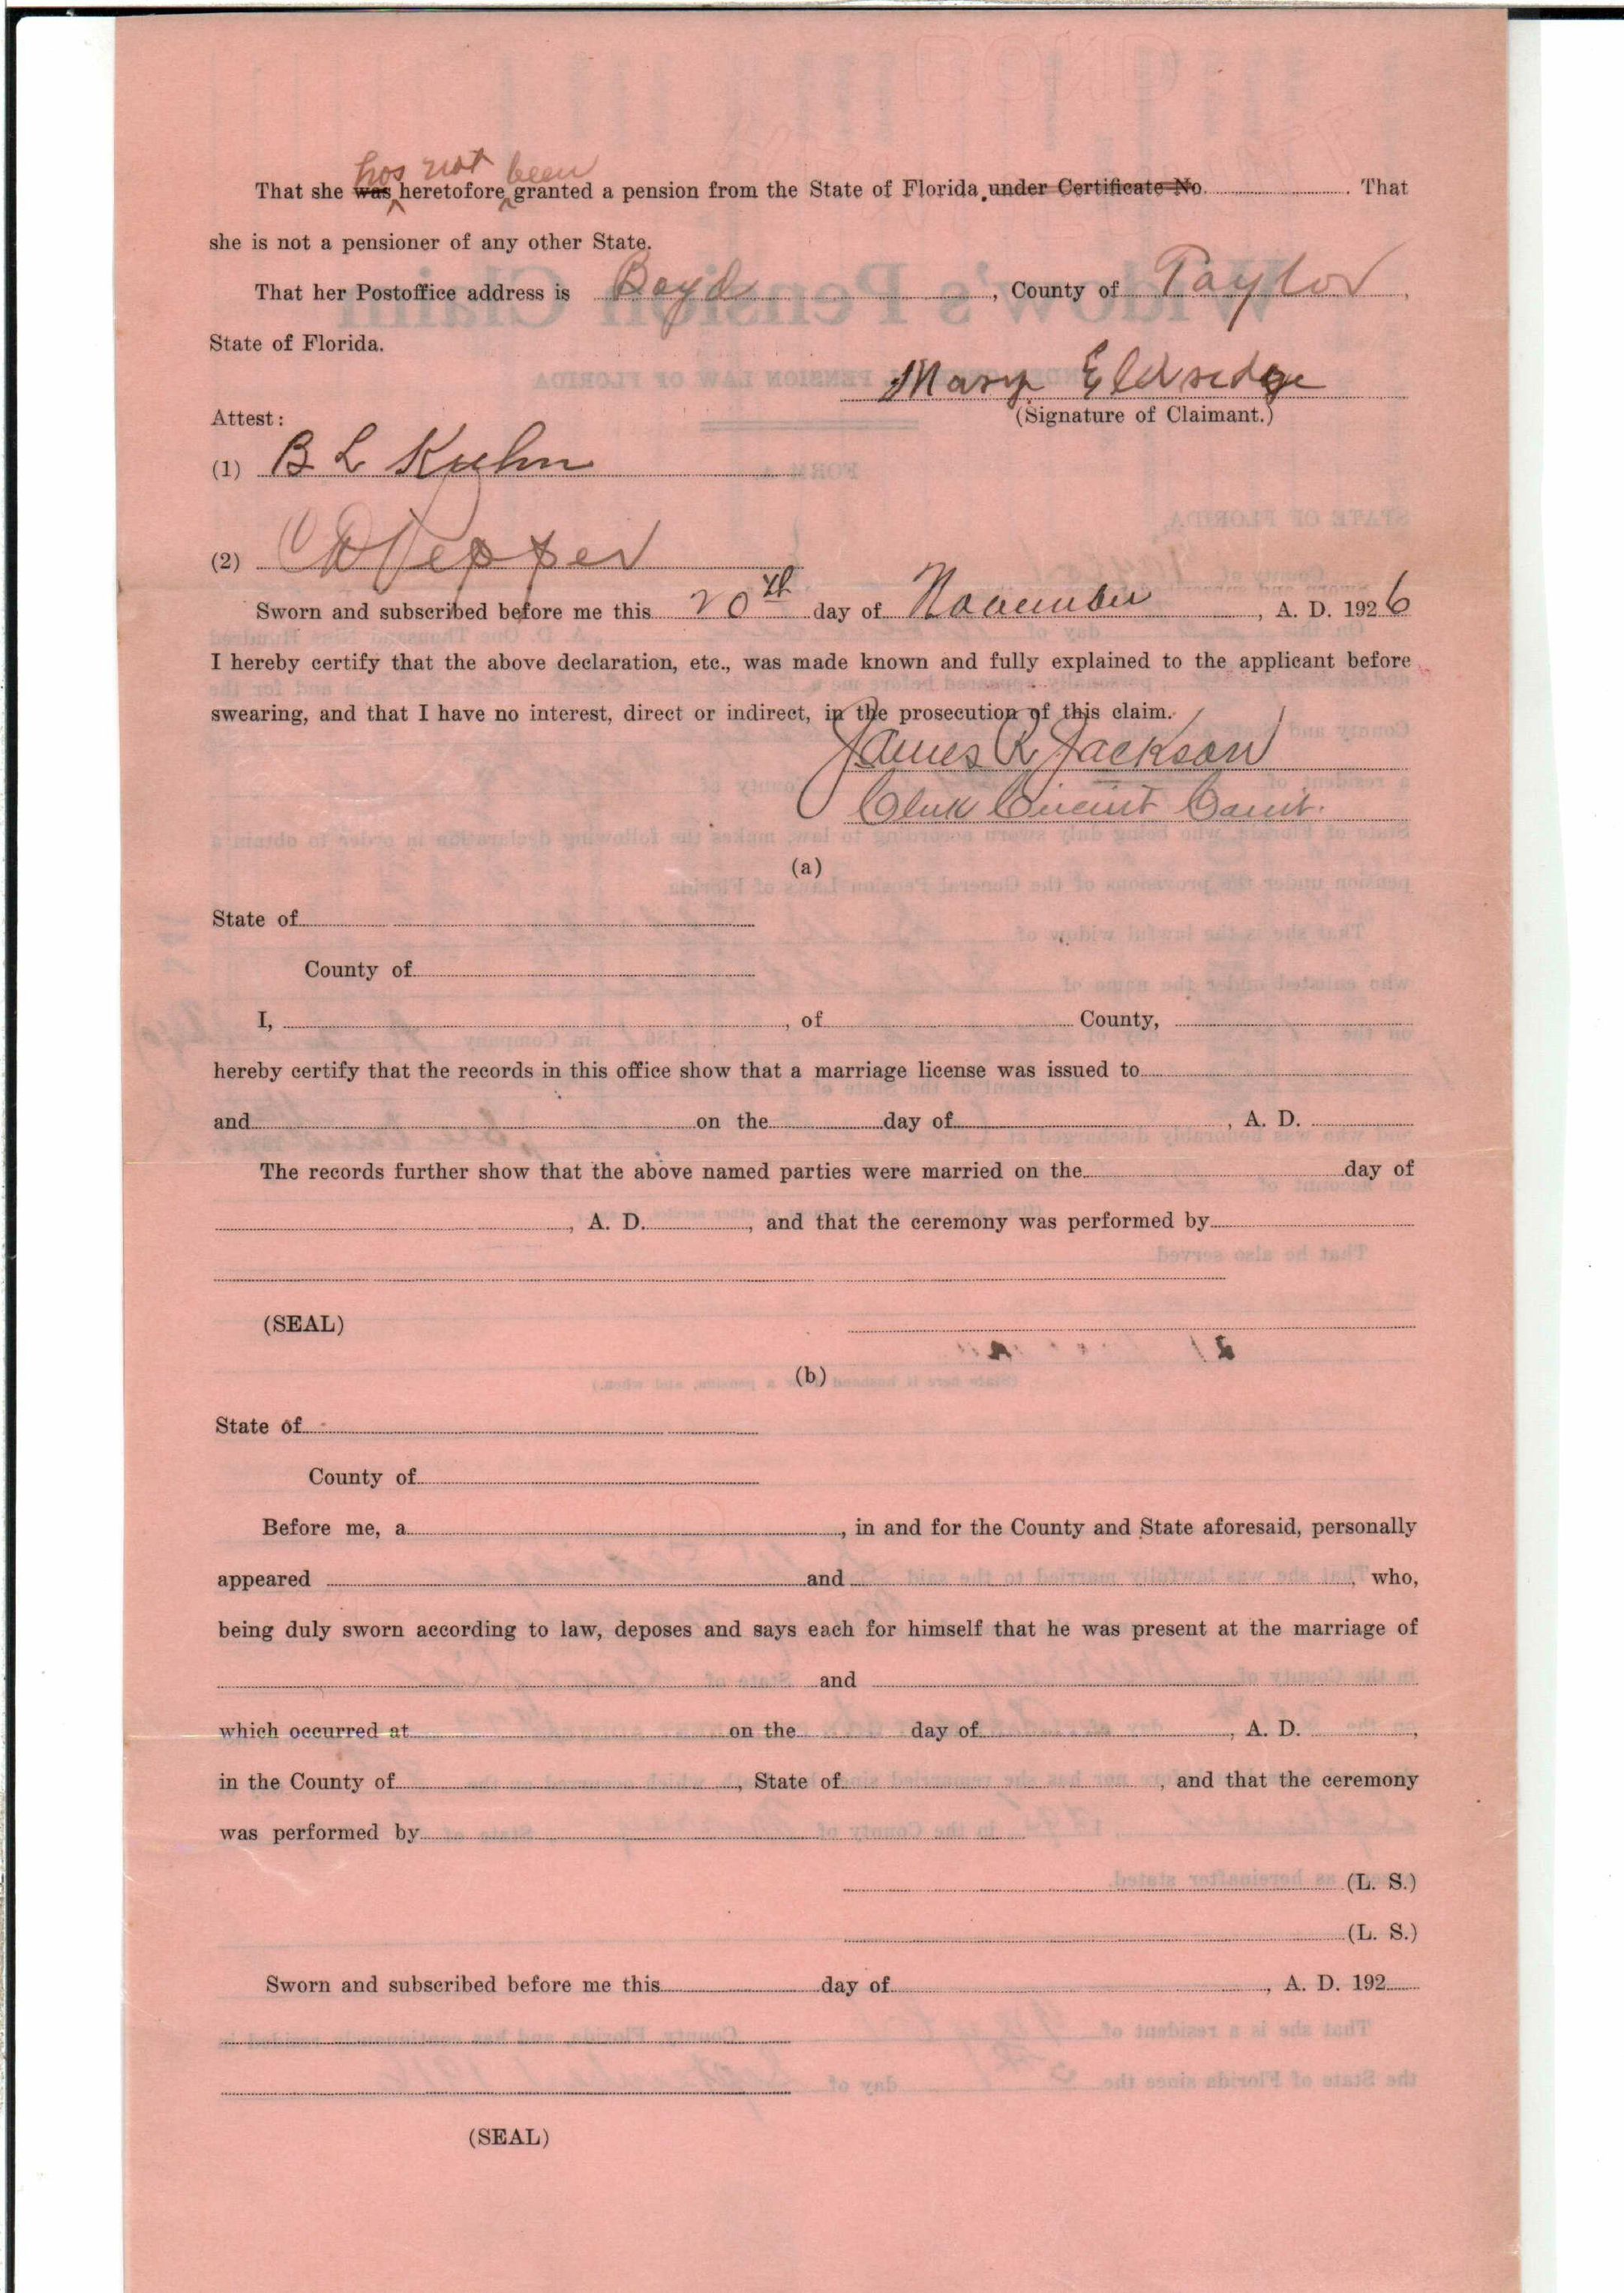 has not been
That she was heretofore granted a pension from the State of Florida. under Certificate No. That
she is not a pensioner of any other State.
That her Postoffice address is Boyd, County of Taylor,
State of Florida.
Mary Eldridge
(Signature of Claimant.)
Attest:
(1) B L Kuhn
(2) Pepper
Sworn and subscribed before me this 20th day of November, A. D. 1926
I hereby certify that the above declaration, etc., was made known and fully explained to the applicant before
swearing, and that I have no interest, direct or indirect, in the prosecution of this claim.
James R Jackson
Clerk Circuit Court.
(a)
State of
County of
I, , of County,
hereby certify that the records in this office show that a marriage license was issued to
and on the day of , A. D.
The records further show that the above named parties were married on the day of
, A. D. , and that the ceremony was performed by
(SEAL)
(b)
State of
County of
Before me, a , in and for the County and State aforesaid, personally
appeared and , who,
being duly sworn according to law, deposes and says each for himself that he was present at the marriage of
and
which occurred at on the day of , A. D. ,
in the County of , State of , and that the ceremony
was performed by
(L. S.)
(L. S.)
Sworn and subscribed before me this day of , A. D. 192
(SEAL)